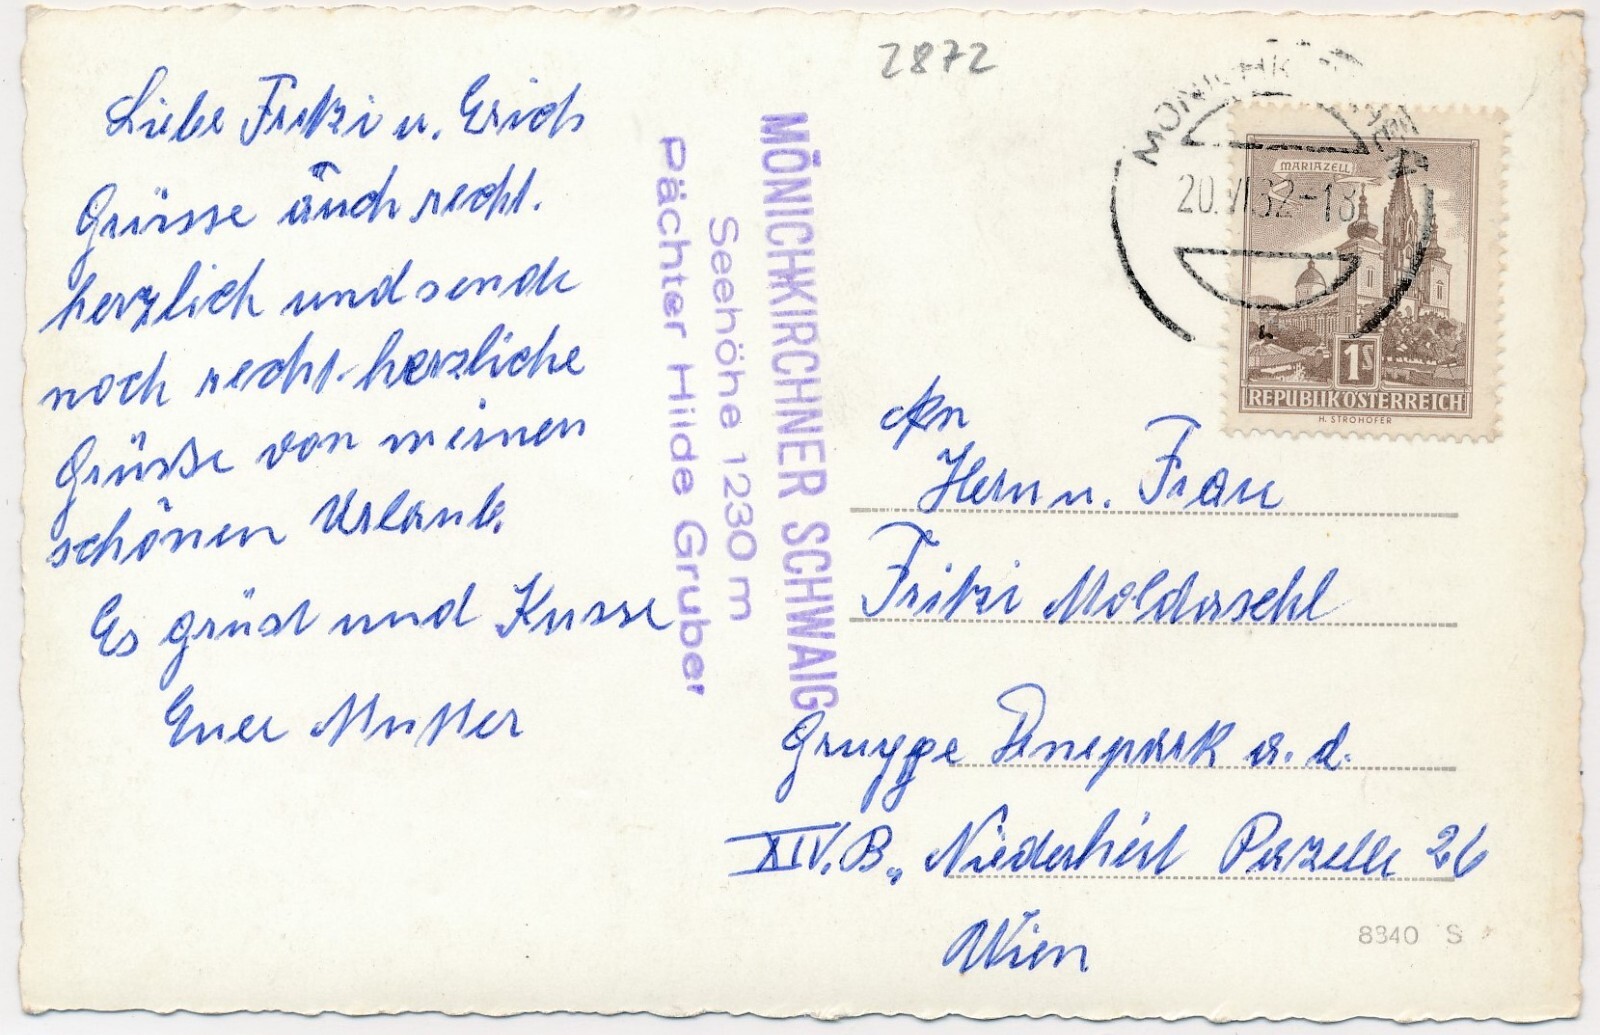 Liebe Fritzi u. Erich
Grüsse äuch recht.
herzlich und sende
noch recht herzliche
Grüße von meinen
schönen Urlaub.
Es grüst und Küsse
Euer Mutter
MÖNICHKIRCHNER SCHWAIG
Seehöhe 1230 m
Pächter Hilde Gruber
2872
20.VI.62-18
MARIAZELL
1S
REPUBLIK ÖSTERREICH
H. STROHOFER
An
Herrn u. Frau
Fritzi Moldaschl
Gruppe a. d.
XIV. B. Parzelle 26
Wien
8340 S